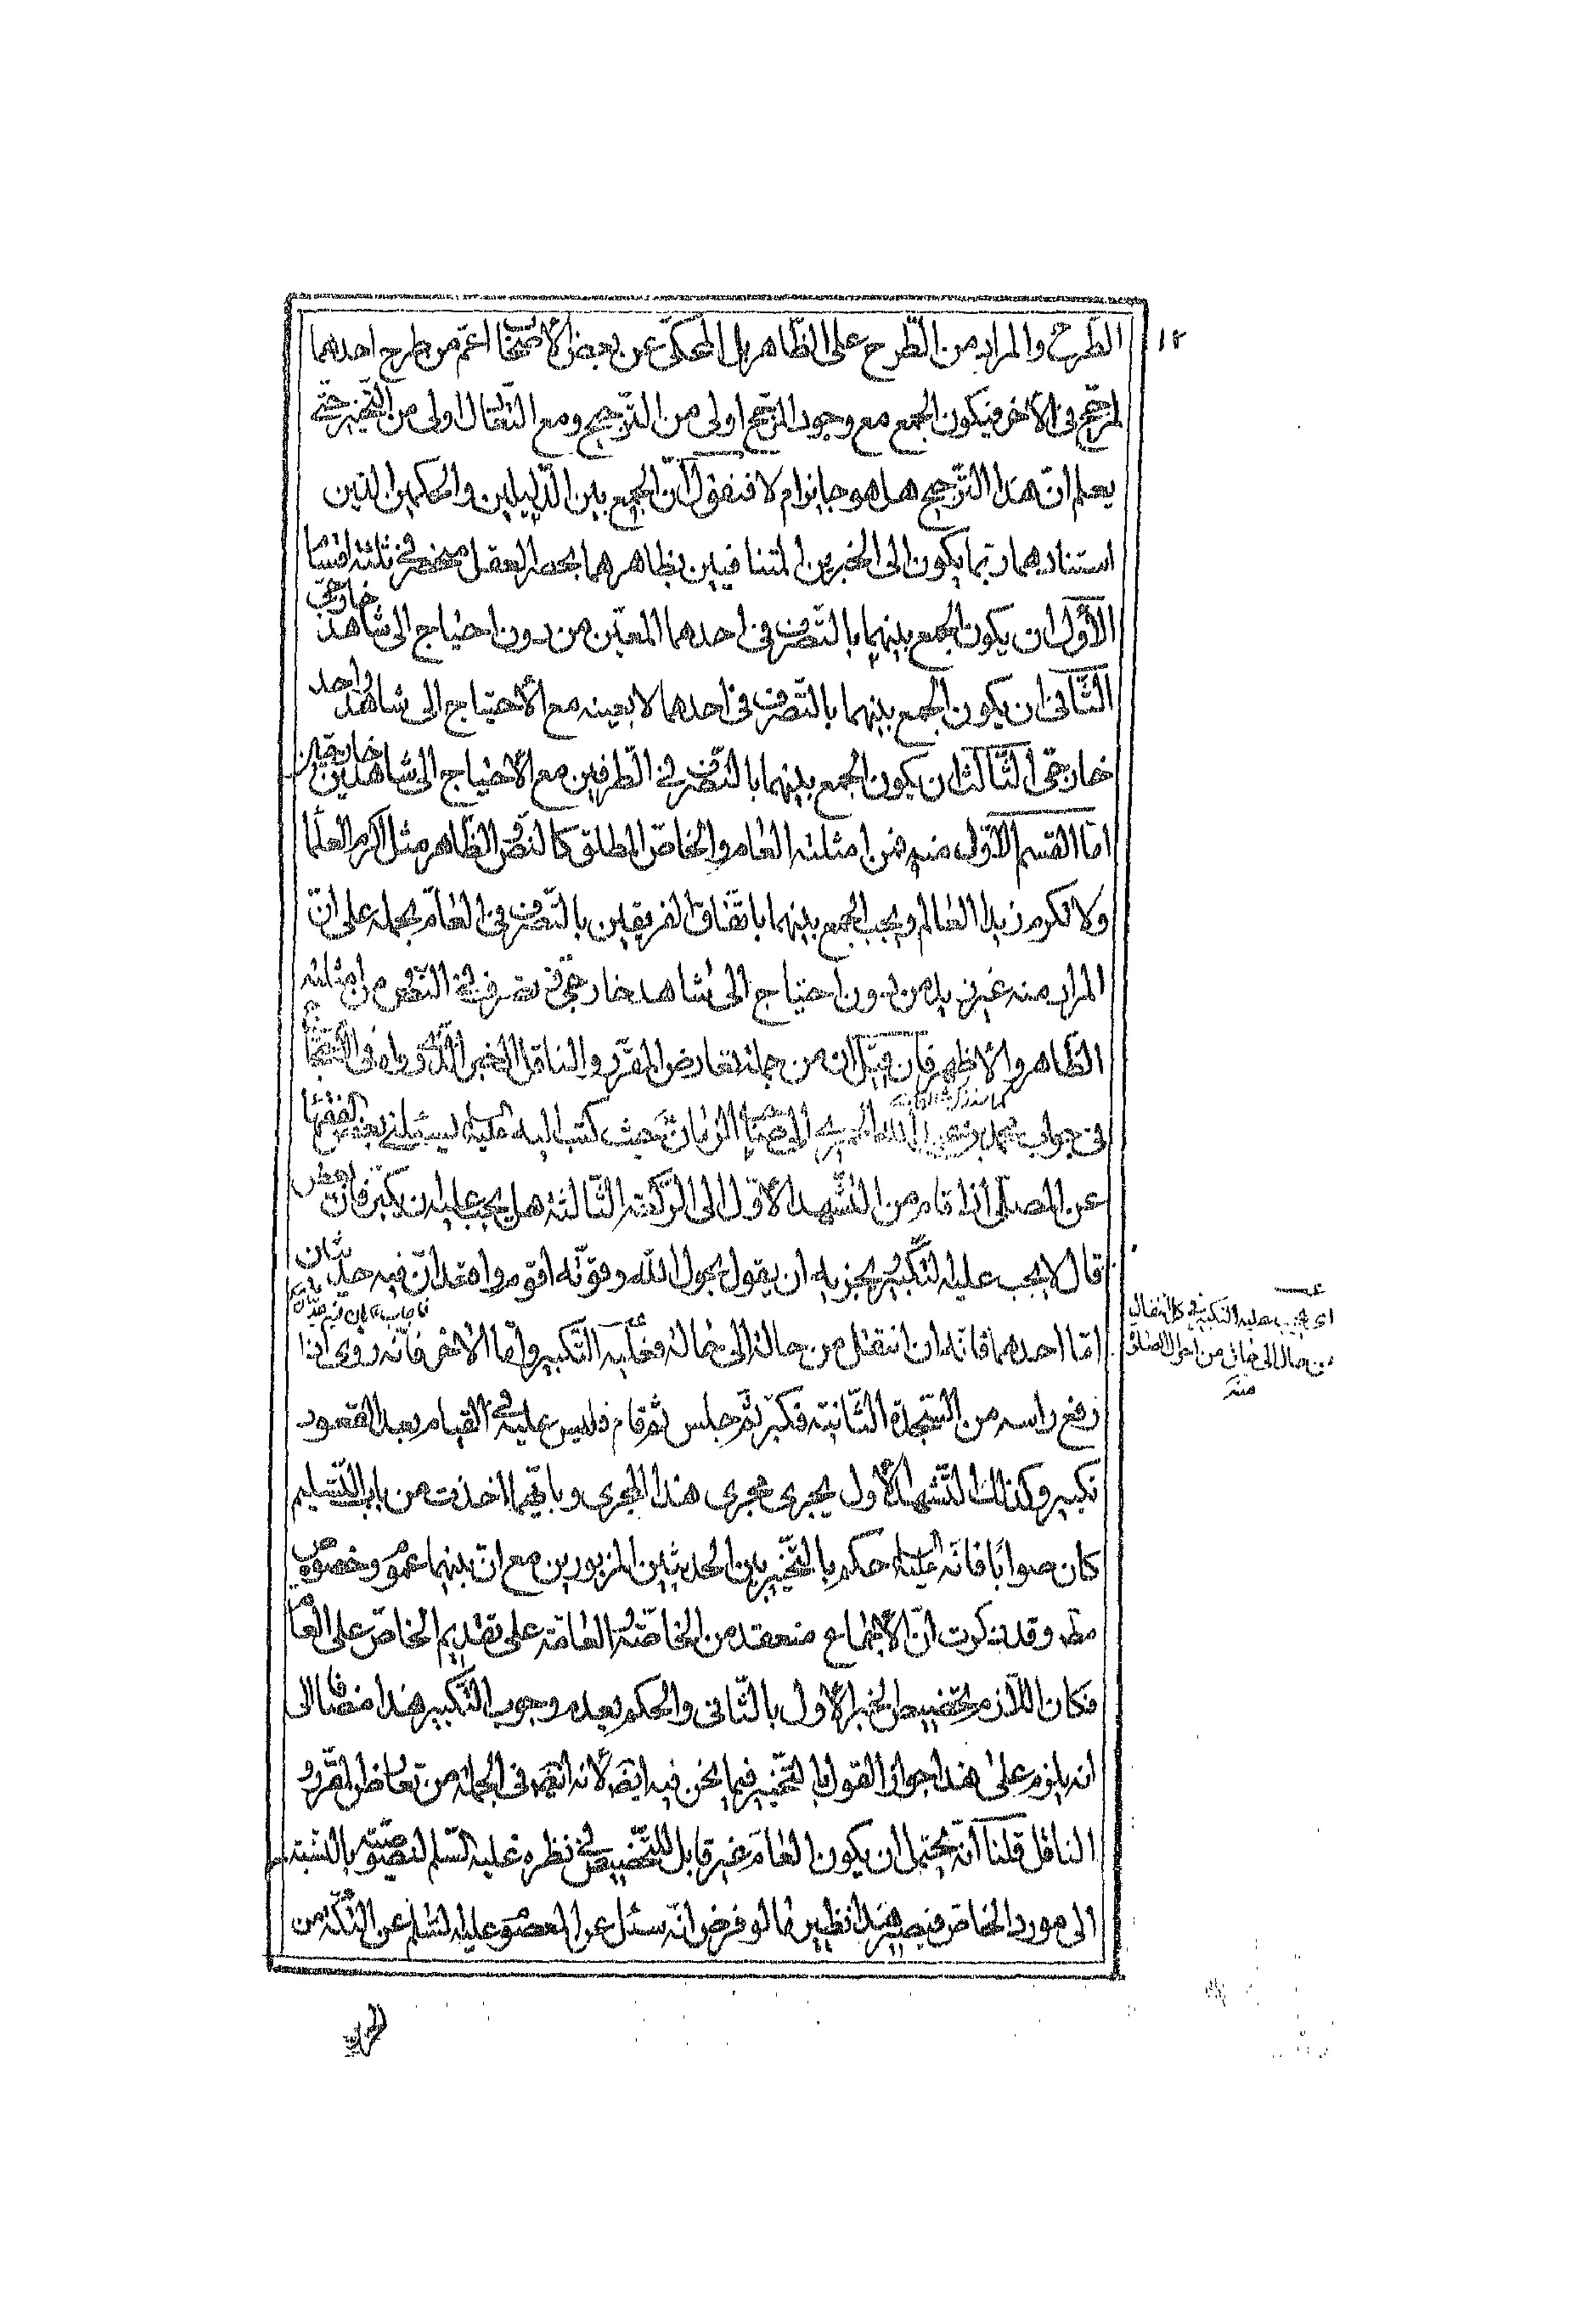 ١٢
الطّرح والمراد من الطّرح على الظّاهر بل المحكىّ عن بعض الأصحاب اعمّ من طرح احدهما
لمرجّح فى الاخر فيكون الجمع مع وجود المرجّح اولى من التّرجيح ومع التّعادل اولى من التّخيير حتّى
يعلم انّ هذا التّرجيح هل هو جايز ام لا فنقول انّ الجمع بين الدّليلين والحكمين الذين
استنادهما ربّما يكون الى الخبرين المتنافيين بظاهرهما بحصر العقل منحصر فى ثلثة اقسام
الأوّل ان يكون الجمع بينهما بالتّصرّف فى احدهما المعيّن من دون احتياج الى شاهد خارجى
الثّانى ان يكون الجمع بينهما بالتّصرّف فى احدهما لا بعينه مع الأحتياج الى شاهد واحد
خارجى الثّالث ان يكون الجمع بينهما بالتّصرّف فى الطّرفين مع الأحتياج الى شاهدين خارجيّين
امّا القسم الأوّل منه فمن امثلته العام والخاصّ المطلق كالنصّ والظّاهر مثل اكرم العلماء
ولا تكرم زيدا العالم ويجب الجمع بينهما باتّفاق الفريقين بالتّصرّف فى العامّ بحمله على انّ
المراد منه غير زيد من دون احتياج الى شاهد خارجى فى تصرفه فى النّصّ ومن امثلته
الظّاهر والاظهر فان قيل ان من جملة تعارض المقرّر والناقل الخبر الّذى رواه فى الأحتجاج
فى جواب محمد بن عبد الله الحميرى الى صاحب الزمان حيث كتب اليه عليه السلام يسئلنى بعض الفقهاء
عن المصلّى اذا قام من التّشهد الاوّل الى الرّكعة الثّالثة هل يجب عليه ان يكبّر فانّ بعض اصحابنا
قال لا يجب عليه التّكبير ويجزيه ان يقول بحول اللّه وقوّته اقوم واقعد انّ فيه حديثان
فاجاب ان فيه حديثان
امّا احدهما فانّه اذا انتقل من حالة الى حالة فعليه التّكبير وامّا الأخر فانّه روى اذا
رفع راسه من السّجدة الثّانية فكبّر ثمّ جلس ثمّ قام فليس عليه فى القيام بعد القعود
تكبير وكذلك التّشهد الأول يجرى مجرى هذا المجرى وبايّهما اخذت من باب التّسليم
كان صوابًا فانّه عليه السلام حكم بالتّخيير بين الحديثين المزبورين مع انّ بينهما عموم وخصوص
مط وقد ذكرت انّ الأجماع منعقد من الخاصّة والعامّة على تقديم الخاصّ على العام
فكان اللّازم تخصيص الخبر الأول بالثّانى والحكم بعدم وجوب التّكبير هذا مضافا الى
انه يلزم على هذا جواز القول بالتّخيير فيما نحن فيه ايضًا لأنه ايضا فى الجملة من تعارض المقرّر و
الناقل قلنا انّه يحتمل ان يكون العامّ غير قابل للتّخصيص فى نظره عليه السّلم لنصّوصيّته بالنّسبة
الى مورد الخاصّ فيصير هذا نظير ما لو فرض انّه سئل عن المعصوم عليه السّلم عن النّكتة من
اى يجب عليه التكبير فى كل انتقال
من حال الى حال من احوال الصلوة
منه